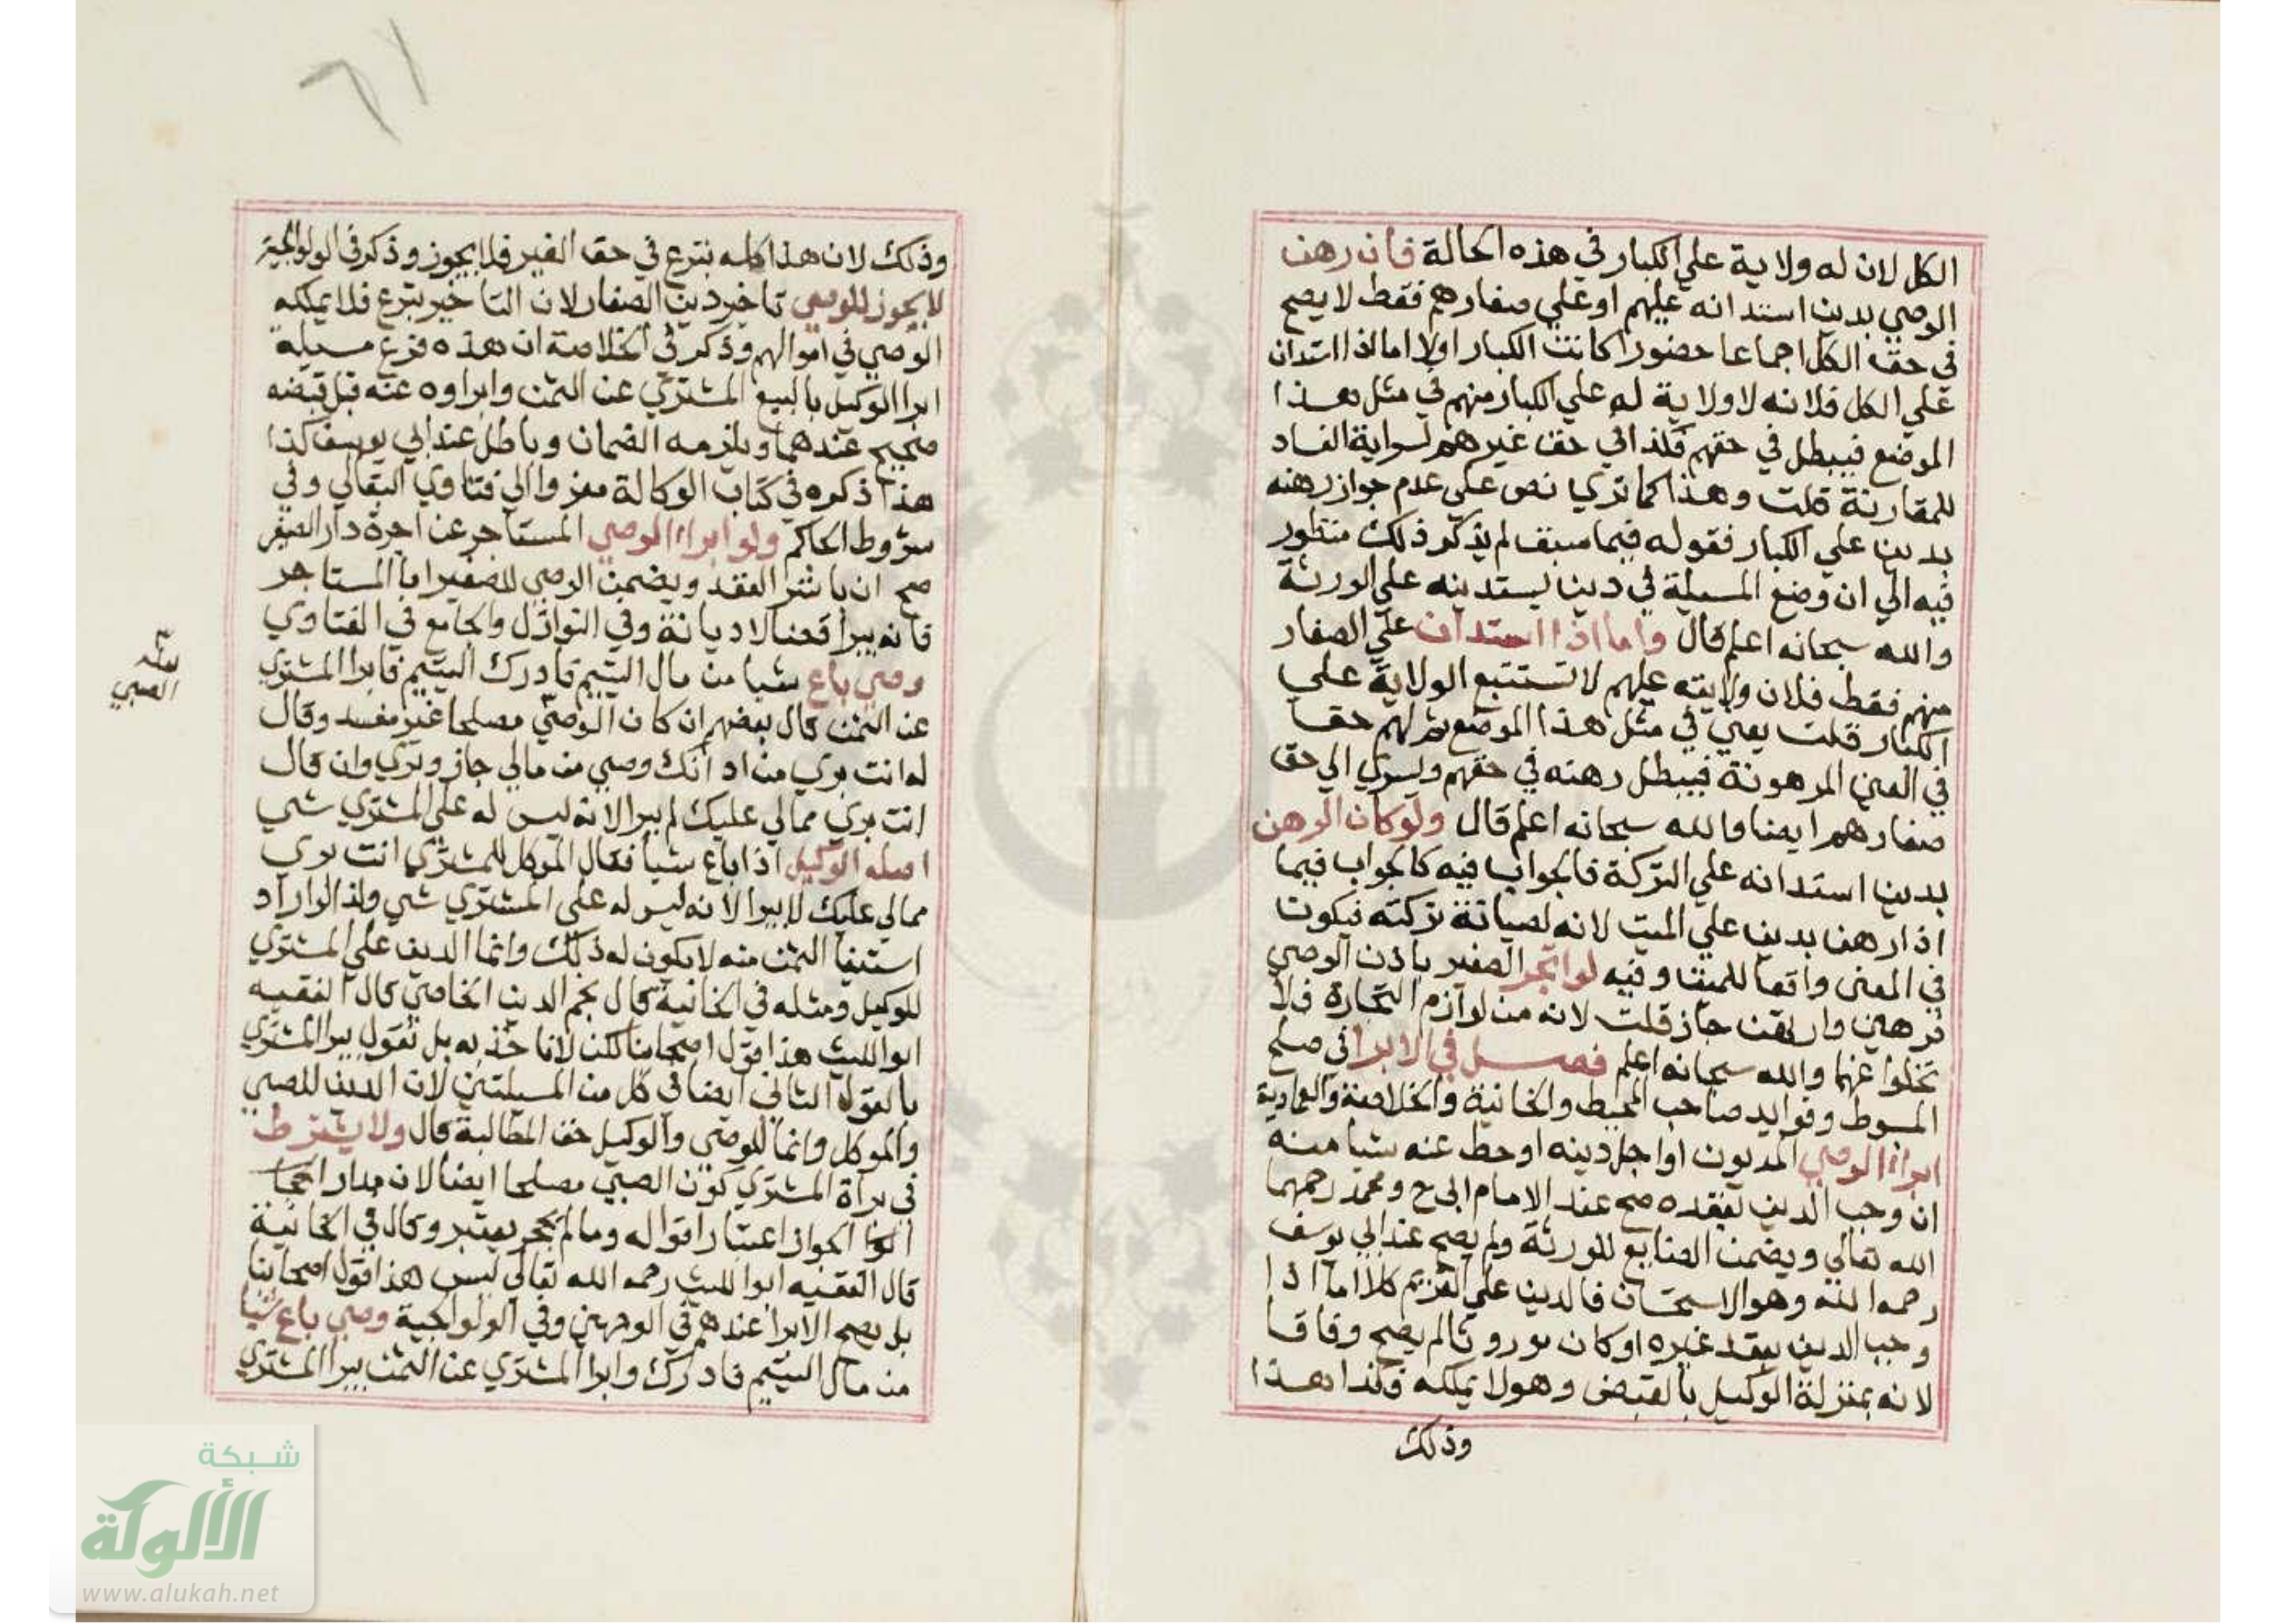 الكل لان له ولاية علي الكبار في هذه الحالة فان رهن
الوصي بدين استدانه عليهم او علي صغارهم فقط لا يصح
في حق الكل اجماعا حضورا كانت الكبار اولا اما اذا استدان
علي الكل فلانه لا ولاية له علي الكبار منهم في مثل هذا
الموضع فيبطل في حقهم فكذا في حق غيرهم لسراية الفساد
للمقارنة قلت وهذا كما تري نص علي عدم جواز رهنه
بدين علي الكبار فقوله فيما سبق لم يذكر ذلك منظور
فيه الي ان وضع المسيلة في دين يستدينه علي الورثة
والله سبحانه اعلم قال واما اذا استدان علي الصغار
منهم فقط فلان ولايته عليهم لا تستتبع الولاية علي
الكبار قلت يعني في مثل هذا الموضع ثم لهم حقا
في العين المرهونة فيبطل رهنه في حقهم ويسري الي حق
صغارهم ايضا والله سبحانه اعلم قال ولو كان الرهن
بدين استدانه علي التركة فالجواب فيه كالجواب فيما
اذا رهن بدين علي الميت لانه لصيانة تركته فيكون
في المعنى واقعا للميت وفيه لو اتجر الصغير باذن الوصي
فرهن وارتهن جاز قلت لانه من لوازم التجارة فلا
تخلوا عنهما والله سبحانه اعلم فصل في الابرا في صلح
المبسوط وفوايد صاحب المحيط والخانية والخلاصة والعمادية
ابراء الوصي المديون او اجل دينه او حط عنه شيا منه
ان وجب الدين بعقده صح عند الامام ابي ح ومحمد رحمهما
الله تعالي ويضمن الضايع للورثة ولم يصح عند ابي يوسف
رحمه الله وهو الاستحسان فالدين علي الغريم كلا اما اذا
وجب الدين بعقد غيره او كان موروثا لم يصح وفاقا
لانه بمنزلة الوكيل بالقبض وهو لا يملكه فكذا هذا
وذلك
وذلك لان هذا كله تبرع في حق الغير فلا يجوز وذكر في الولوالجية
لا يجوز للوصي تاخير دين الصغار لان التاخير تبرع فلا يملكه
الوصي في اموالهم وذكر في الخلاصة ان هذه فرع مسيلة
ابرا الوكيل بالبيع المشتري عن الثمن وابراوه عنه قبل قبضه
صحيح عندهما ويلزمه الضمان وباطل عند ابي يوسف كذا
هذا ذكره في كتاب الوكالة معزوا الي فتاوي البقالي وفي
شروط الحاكم ولو ابراء الوصي المستاجر عن اجرة دار الصغير
صح ان باشر العقد ويضمن الوصي للصغير اما المستاجر
فانه يبرا قضا لا ديانة وفي النوازل والجامع في الفتاوي
وصي باع شيا من مال اليتيم فادرك اليتيم فابرا المشتري
عن الثمن قال بعضهم ان كان الوصي مصلحا غير مفسد وقال
له انت بري من اد انك وصي من مالي جاز وبري وان قال
انت بري مما لي عليك لم يبرا لانه ليس له علي المشتري شي
اصله الوكيل اذا باع شيا فقال الموكل للمشتري انت بري
مما لي عليك لا يبرا لانه ليس له علي المشتري شي ولذا لو اراد
استيفا الثمن منه لا يكون له ذلك وانما الدين علي المشتري
للوكيل ومثله في الخانية قال نجم الدين الخاصي قال الفقيه
ابو الليث هذا قول اصحابنا لكن لا ناخذ به بل نقول يبرا المشتري
بالقول الثاني ايضا في كل من المسيلتين لان الدين للصبي
والموكل وانما للوصي والوكيل حق المطالبة قال ولا يشترط
في براة المشتري كون الصبي مصلحا ايضا لان مدار
الجواز اعتبار اقواله وما لم يحجر يعتبر وقال في الخانية
قال الفقيه ابو الليث رحمه الله تعالي ليس هذا قول اصحابنا
بل يصح الابرا عندهم في الوجهين وفي الولوالجية وصي باع شيا
من مال اليتيم فادرك وابرا المشتري عن الثمن يبرا المشتري
الصبي
شبكة
الألوكة
www.alukah.net